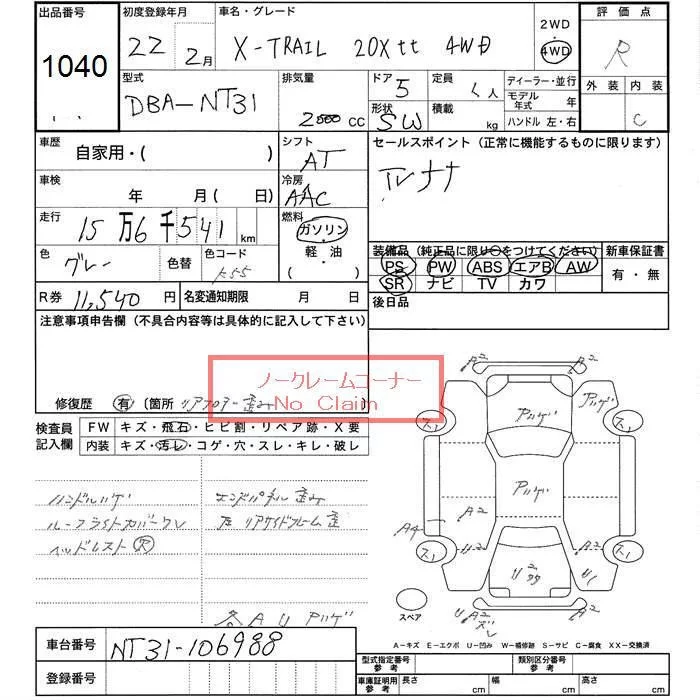 出品番号 初度登録年月 車名・グレード 2WD 評価点
1040 22 2月 X-TRAIL 20Xtt 4WD 4WD R
型式 排気量 ドア 定員 ディーラー・並行 外装 内装
DBA-NT31 2000 cc 5 く人 モデル年式 年
形状 積載 ハンドル 左・右 C
SW kg
車歴 シフト セールスポイント (正常に機能するものに限ります)
自家用・( ) AT TVナナ
車検 冷房
年 月 (日) AAC
走行 燃料
15万6千541km ガソリン・軽油・( )
色 色替 色コード 装備品 (純正品に限り○をつけてください) 新車保証書
グレー K55 PS PW ABS エアB AW 有・無
SR ナビ TV カワ
R券 11,540円 名変通知期限 月 日 後日品
注意事項申告欄 (不具合内容等は具体的に記入して下さい)
ノークレームコーナー
No Claim
修復歴 有 〔箇所 リアフロアー歪み 〕
検査員記入欄 FW キズ・飛石・ヒビ割・リペア跡・X要
内装 キズ・汚レ・コゲ・穴・スレ・キレ・破レ
ハンドルハゲ エンドパネル歪み
ルーフライトカバーワレ 左リアサイドフレーム歪
ヘッドレスト欠
各AUアリゲ
A2 A2
アリゲ アリゲ
スリ スリ
アリゲ
A2 A2
A4
スリ U2 スリ
U2 U1
スペア U2 A2
A－キズ E－エクボ U－凹み W－補修跡 S－サビ C－腐食 XX－交換済
車台番号 NT31-106988
登録番号
型式指定番号参考 類別区分番号参考
車庫証明用参考 長さ cm 幅 cm 高さ cm